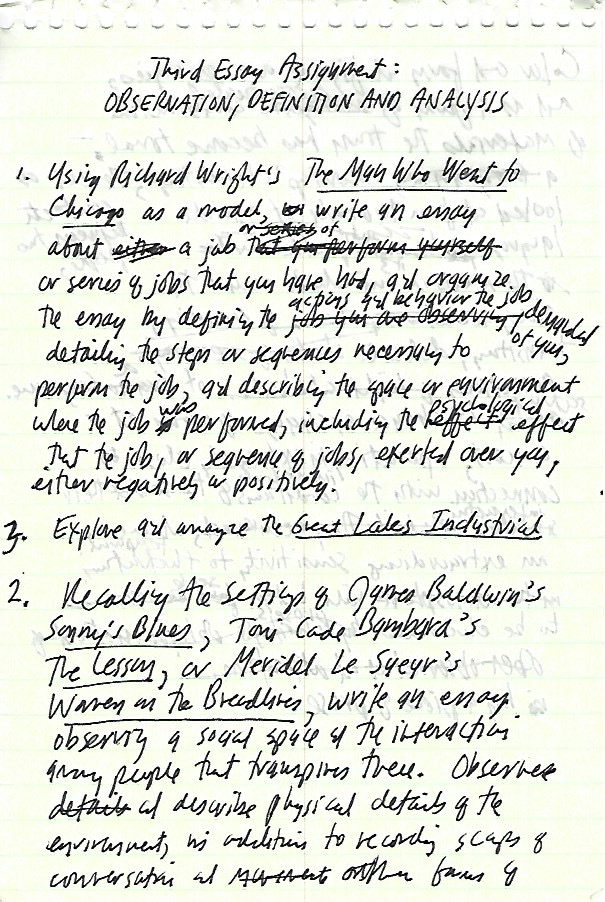 Third Essay Assignment:
OBSERVATION, DEFINITION AND ANALYSIS
1. Using Richard Wright's The Man Who Went to
Chicago as a model, write an essay
or series of
about either a job that you perform yourself
or series of jobs that you have had, and organize
actions and behavior the job
the essay by defining the job you are observing, demanded
of you,
detailing the steps or sequences necessary to
perform the job, and describing the space or environment
was psychological
where the job is performed, including the effect effect
that the job, or sequence of jobs, exerted over you,
either negatively or positively.
3. Explore and analyze the Great Lakes Industrial
2. Recalling the settings of James Baldwin's
Sonny's Blues, Toni Cade Bambara's
The Lesson, or Meridel Le Sueur's
Women on the Breadlines, write an essay
observing a social space and the interactions
among people that transpires there. Observe
details and describe physical details of the
environment, in addition to recording scraps of
conversation and movements other forms of